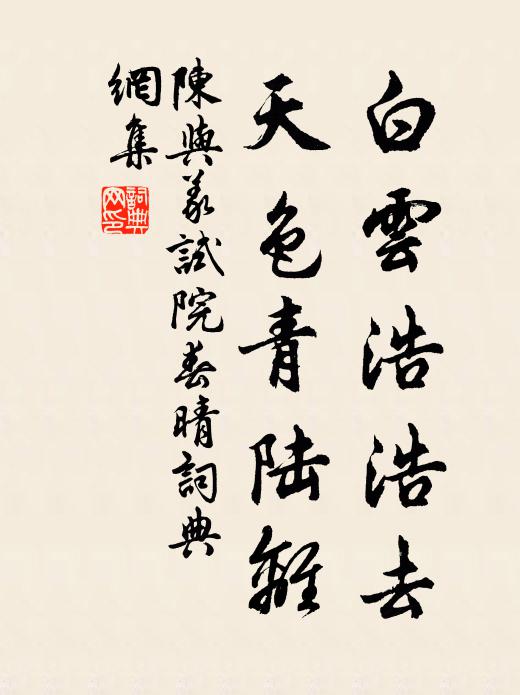 白雲浩浩去
天色青陆離
陳與義試院春晴詞典
網集
詞典網印